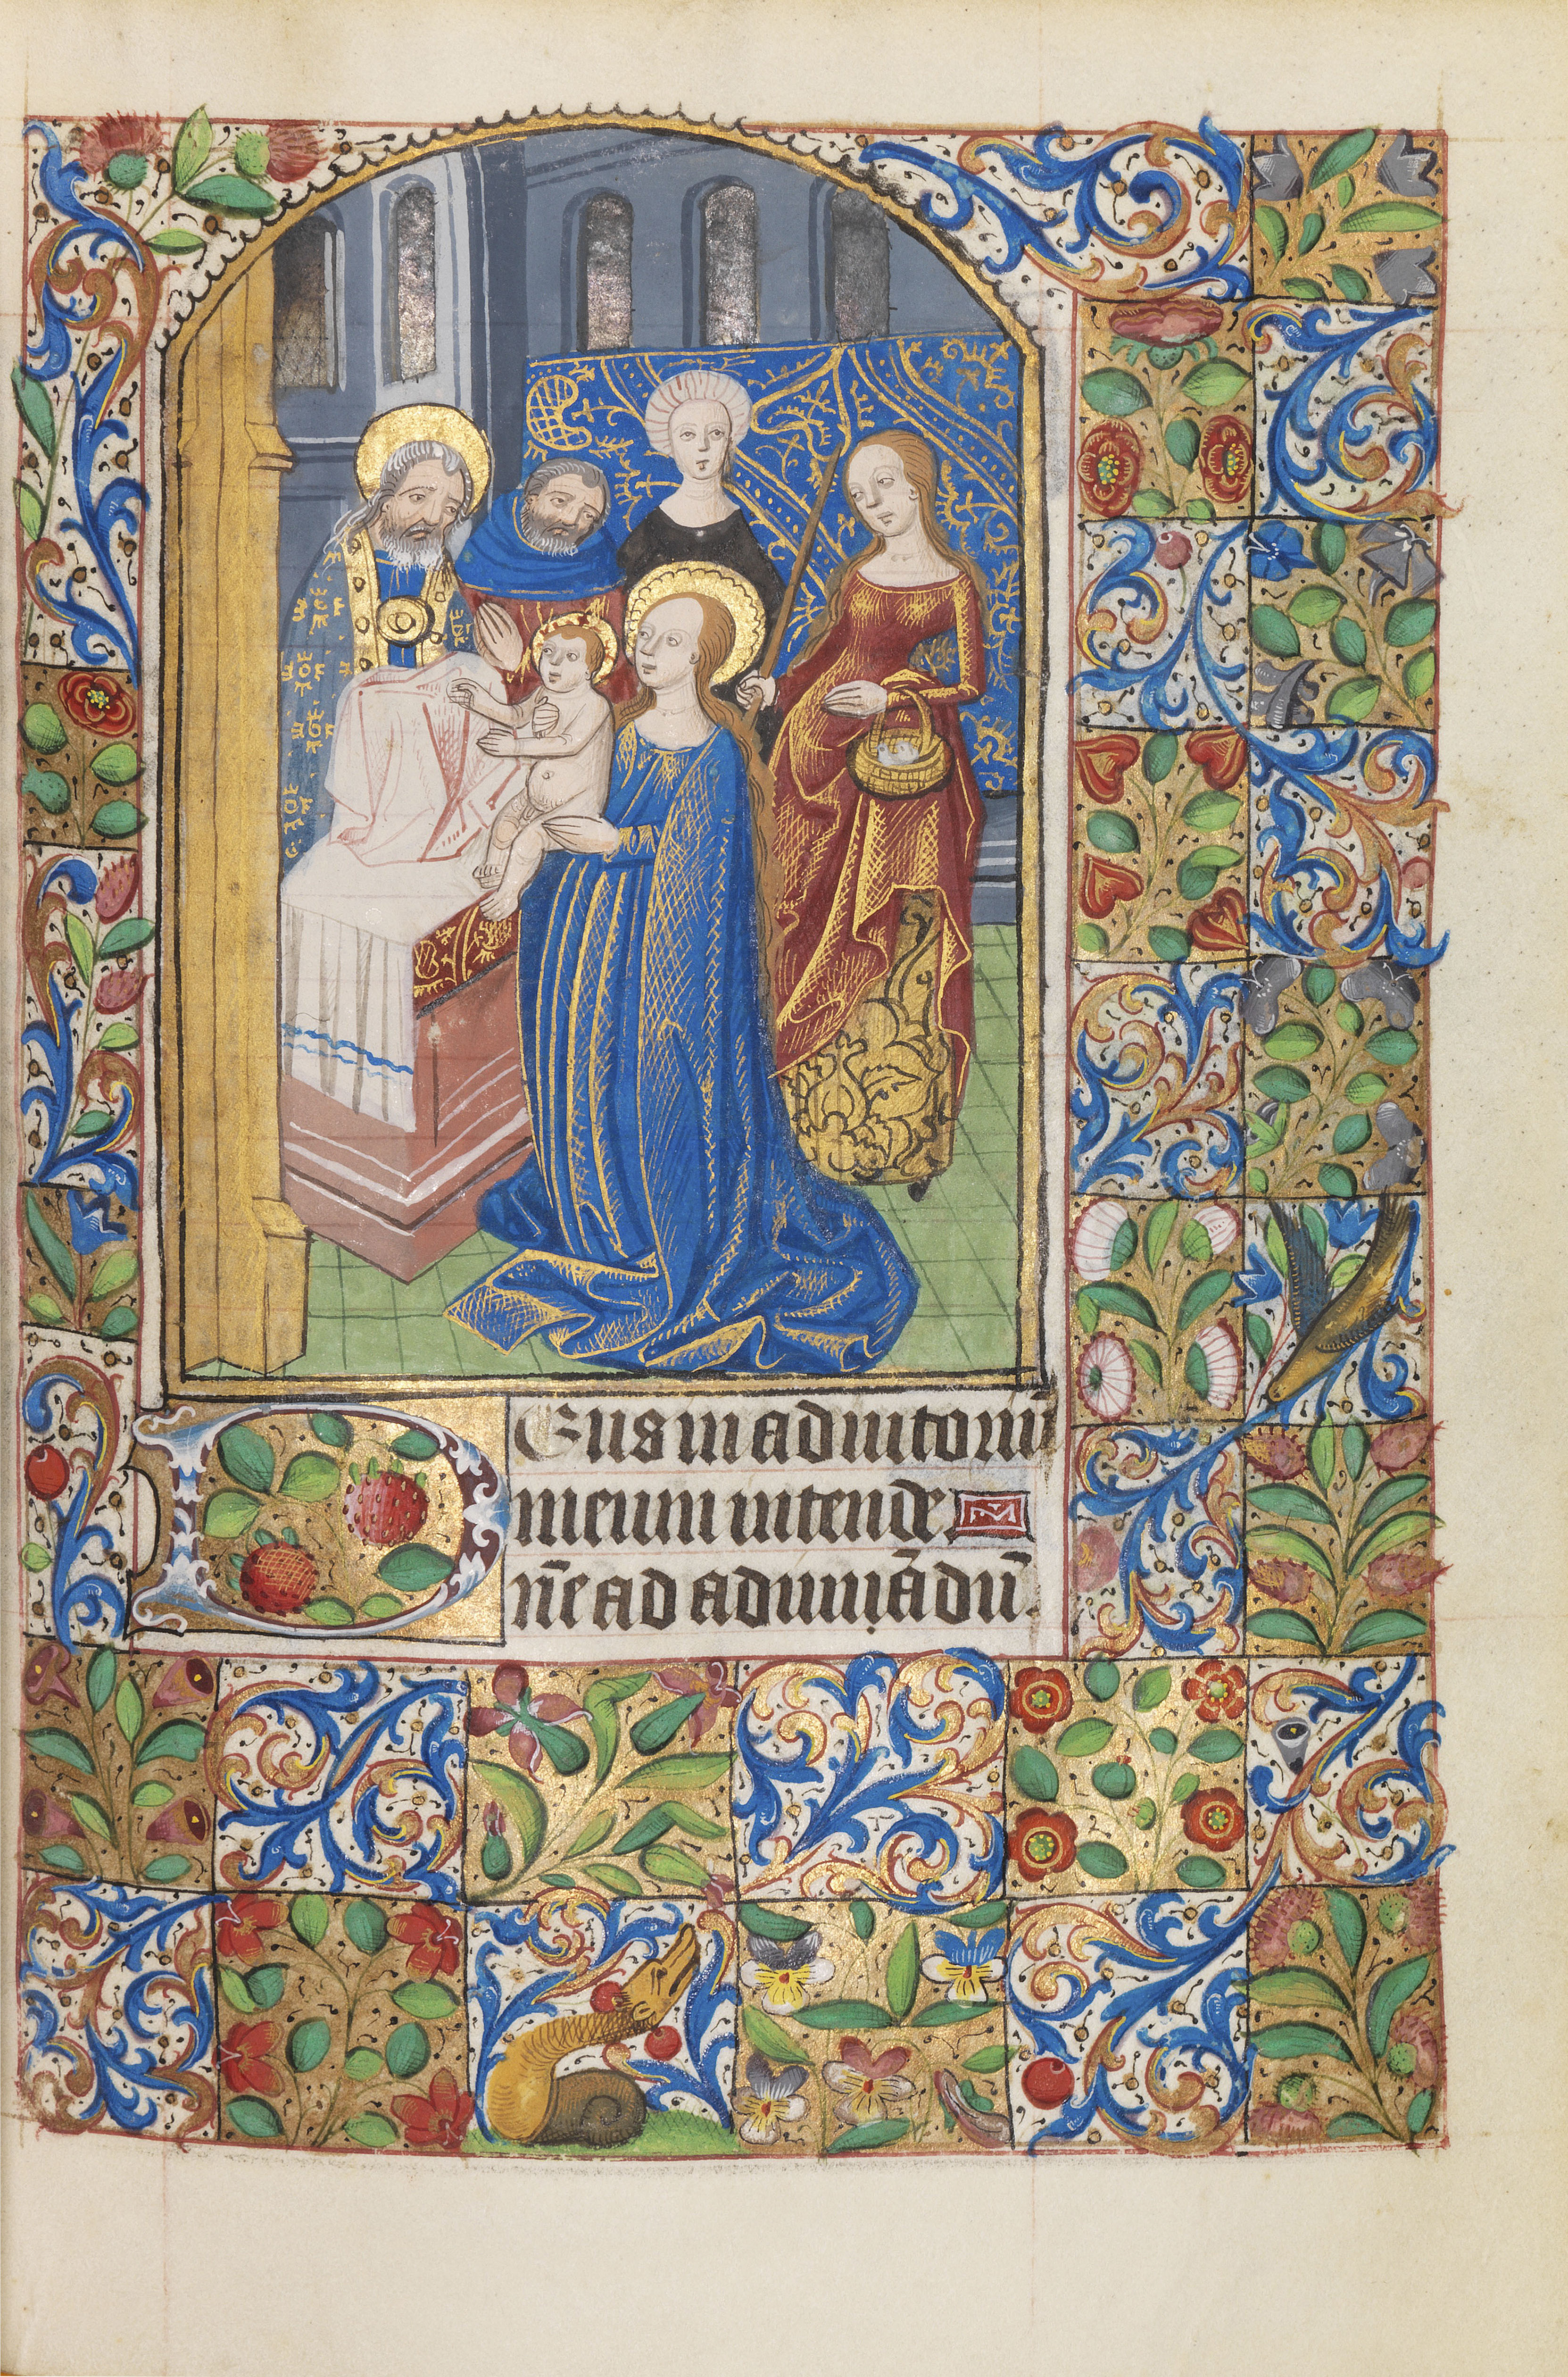 DEus in adiutoriū
meum intende
ñe ad adiuuādū.